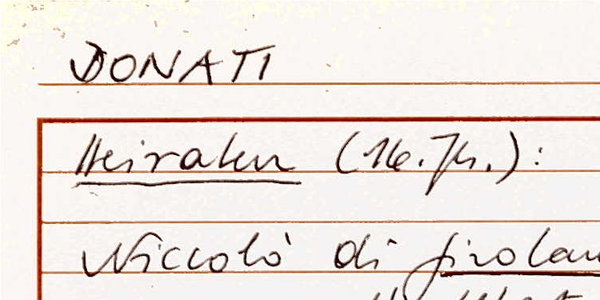 DONATI
Heiraten (16. Jh.):
Niccolò di